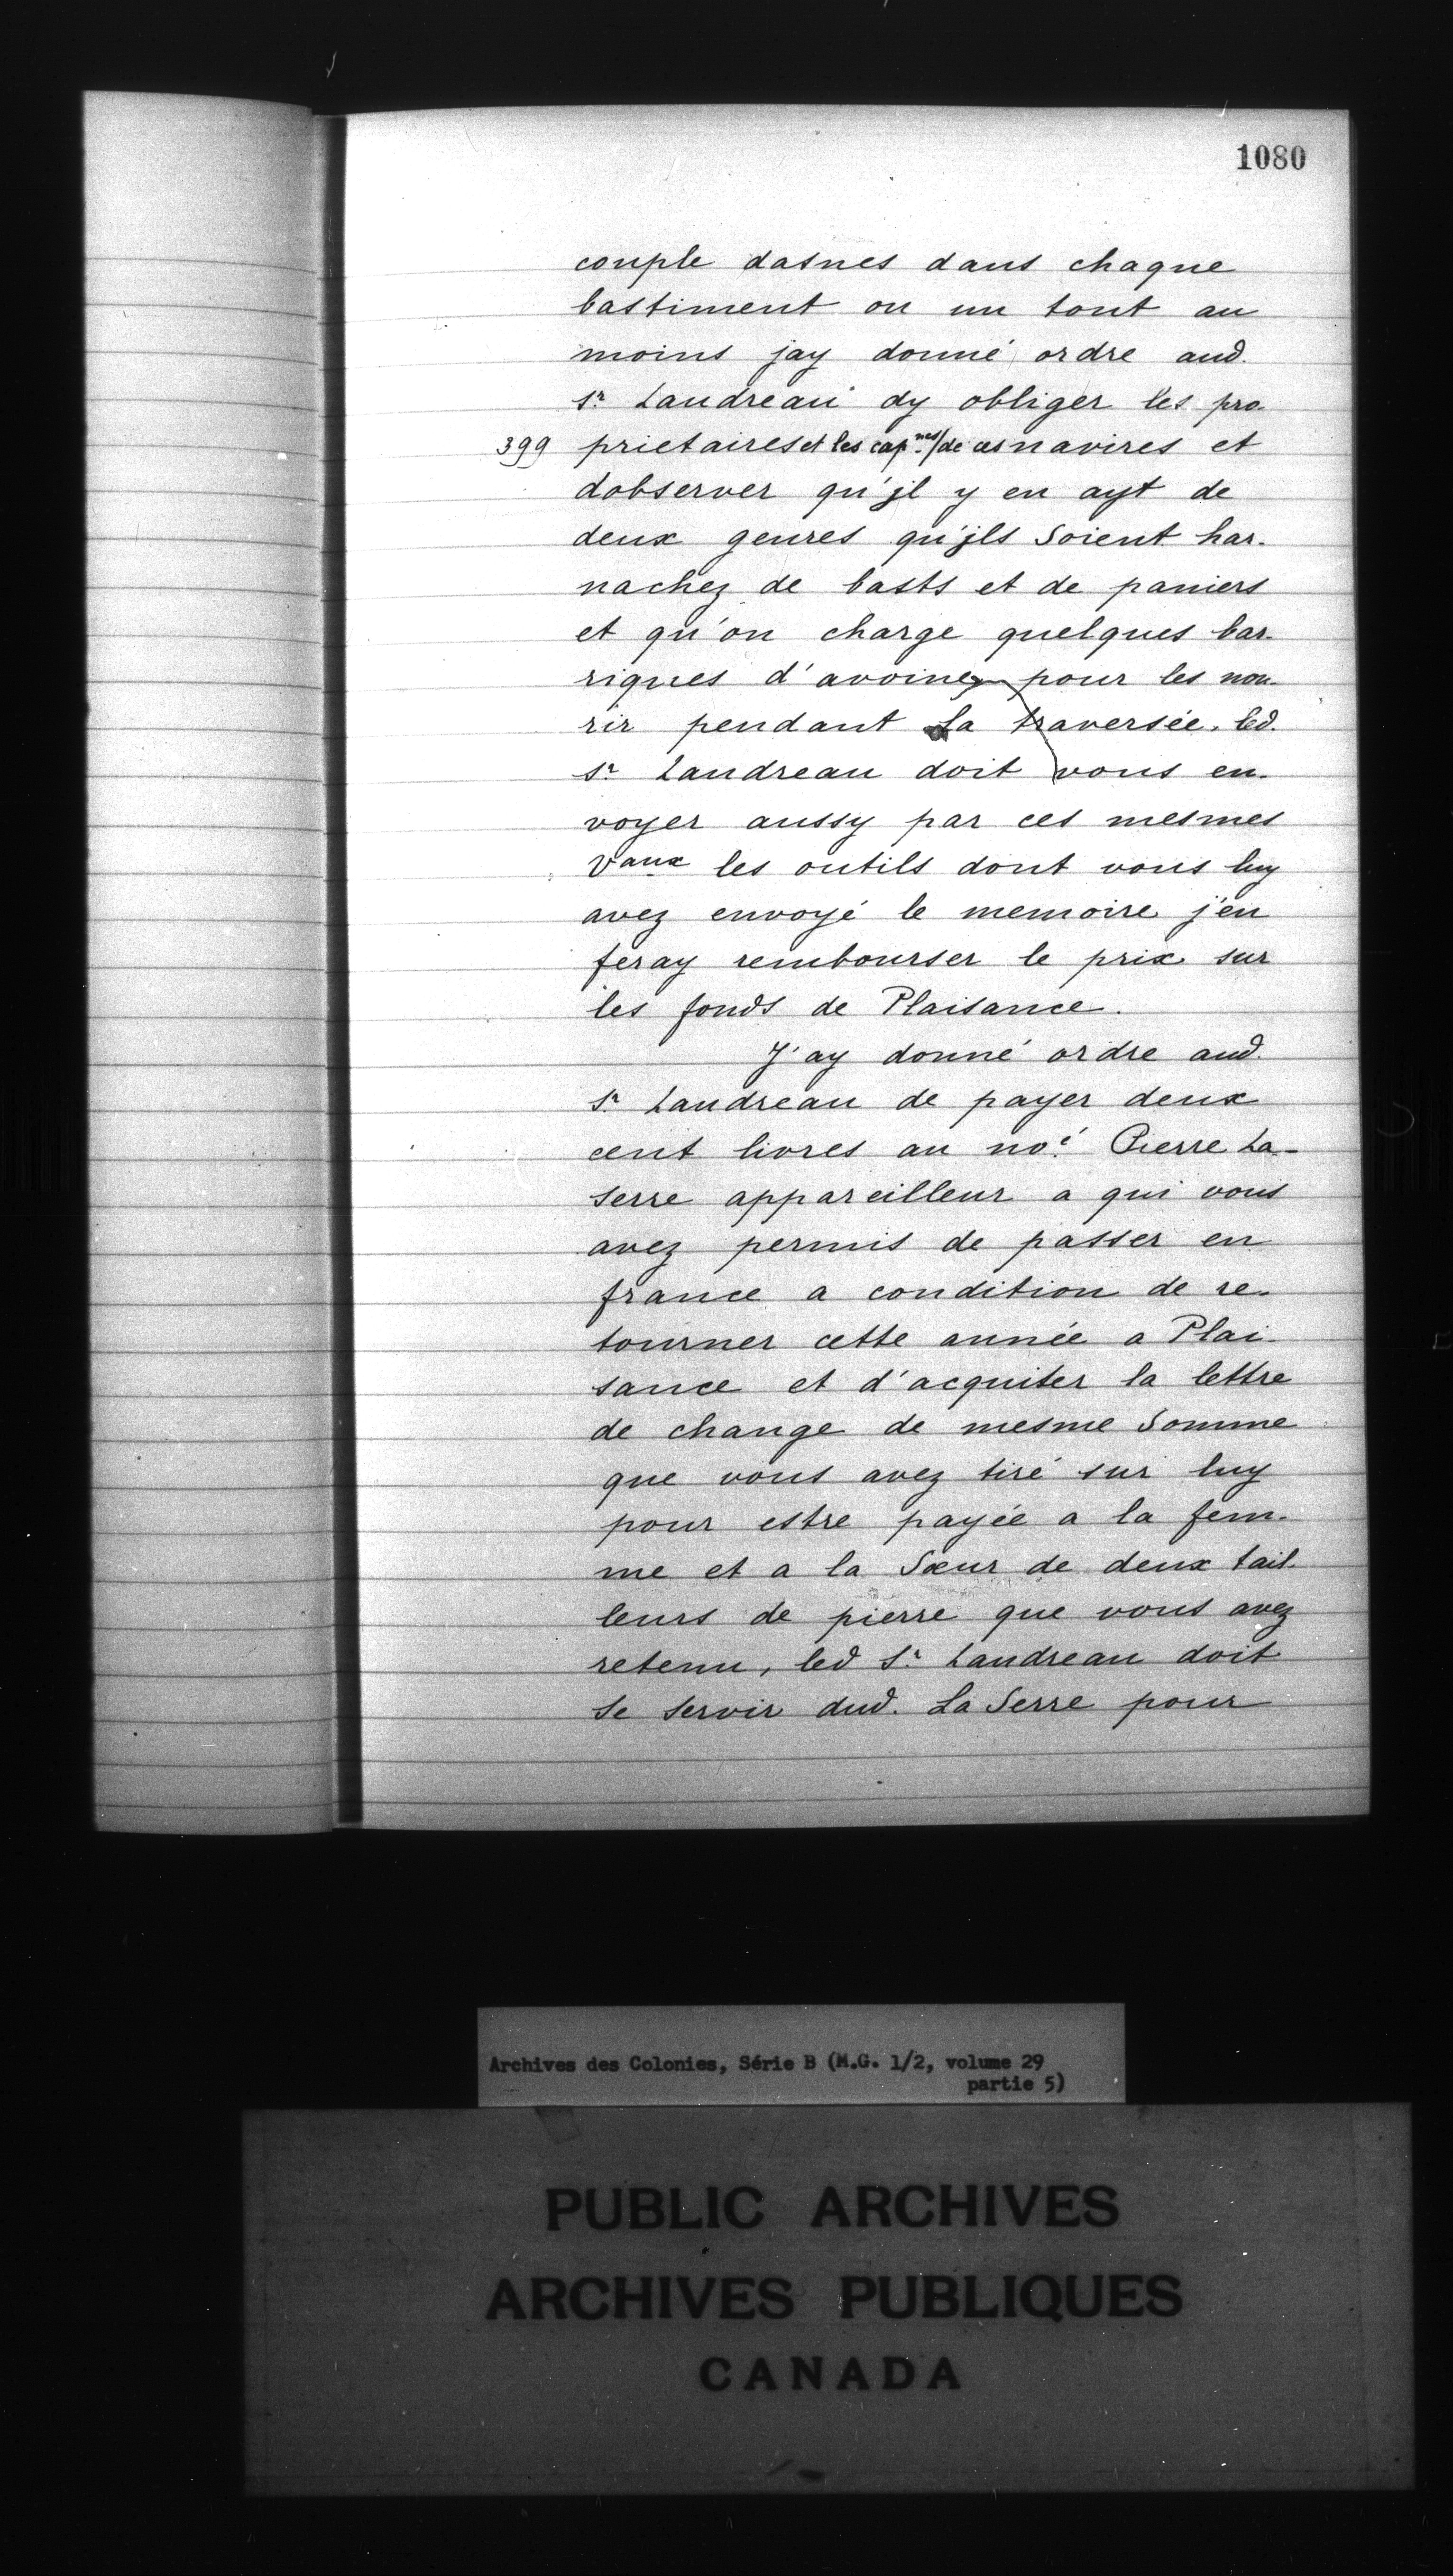 1080
couple dasnes dans chaque
bastiment ou un tout au
moins jay donné ordre aud.
sr. Landreau dy obliger les pro
399 prietaires et les cap.nes/de ces navires et
dobserver qu'jl y en ayt de
deux genres qu'jls Soient har-
nachez de basts et de paniers
et qu'on charge quelques bar-
riques d'avoine pour les nou-
rir pendant La traversée. led.
sr Landreau doit vous en-
voyer aussy par ces mesmes
Vaux les outils dont vous luy
avez envoyé le memoire j'en
feray rembourser le prix sur
les fonds de Plaisance.
J'ay donné ordre aud.
Sr. Landreau de payer deux
cent livres au no.é Pierre La-
serre appareilleur a qui vous
avez permis de passer en
france a condition de re-
tourner cette année a Plai-
sance et d'acquiter la lettre
de change de mesme Somme
que vous avez tiré sur luy
pour estre payée a la fem-
me et a la Sœur de deux tail-
leurs de pierre que vous avez
retenu, led Sr. Landreau doit
se servir dud. La Serre pour
Archives des Colonies, Série B (M.G. 1/2, volume 29
partie 5)
PUBLIC ARCHIVES
ARCHIVES PUBLIQUES
CANADA